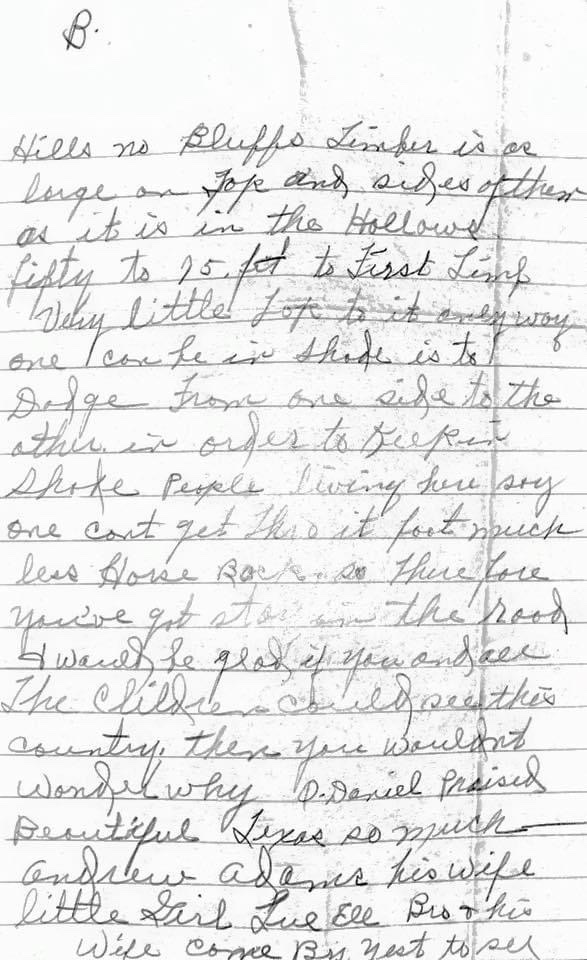 B.
Hills no Bluffs Timber is as
large on Top and sides of them
as it is in the Hollows.
fifty to 75. ft to First Limb
Very little Top to it only way
one can be in Shade is to
Dodge From one side to the
other in order to Keep in
Shade People living here say
one cant get thro it foot much
less Horse Back. so There fore
you've got stay in the road
I would be glad if you and all
The Children could see this
country. then you wouldnt
wonder why O. Daniel Praised
Beautiful Texas so much
Andrew Adams his wife
little Girl Lue Ell Bro & his
Wife come By yest to see